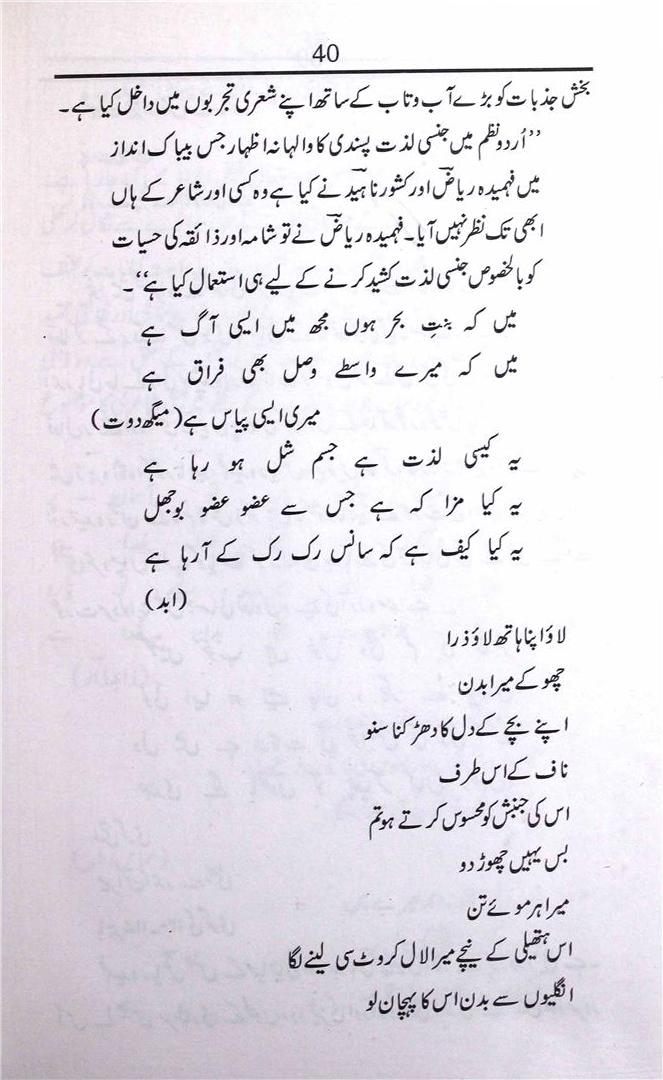 40
بخش جذبات کو بڑے آب و تاب کے ساتھ اپنے شعری تجربوں میں داخل کیا ہے۔
’’اُردو نظم میں جنسی لذت پسندی کا والہانہ اظہار جس بیباک انداز
میں فہمیدہ ریاضؔ اور کشور ناہیدؔ نے کیا ہے وہ کسی اور شاعر کے ہاں
ابھی تک نظر نہیں آیا۔ فہمیدہ ریاضؔ نے تو شامہ اور ذائقہ کی حسیات
کو بالخصوص جنسی لذت کشید کرنے کے لیے ہی استعمال کیا ہے‘‘۔
میں کہ بنتِ بحر ہوں مجھ میں ایسی آگ ہے
میں کہ میرے واسطے وصل بھی فراق ہے
میری ایسی پیاس ہے (میگھ دوت)
یہ کیسی لذت ہے جسم شل ہو رہا ہے
یہ کیا مزا کہ ہے جس سے عضو عضو بوجھل
یہ کیا کیف ہے کہ سانس رک رک کے آ رہا ہے
(ابد)
لاؤ اپنا ہاتھ لاؤ ذرا
چھو کے میرا بدن
اپنے بچے کے دل کا دھڑکنا سنو
ناف کے اس طرف
اس کی جنبش کو محسوس کرتے ہو تم
بس یہیں چھوڑ دو
میرا ہر موئے تن
اس ہتھیلی کے نیچے میرا لال کروٹ سی لینے لگا
انگلیوں سے بدن اس کا پہچان لو